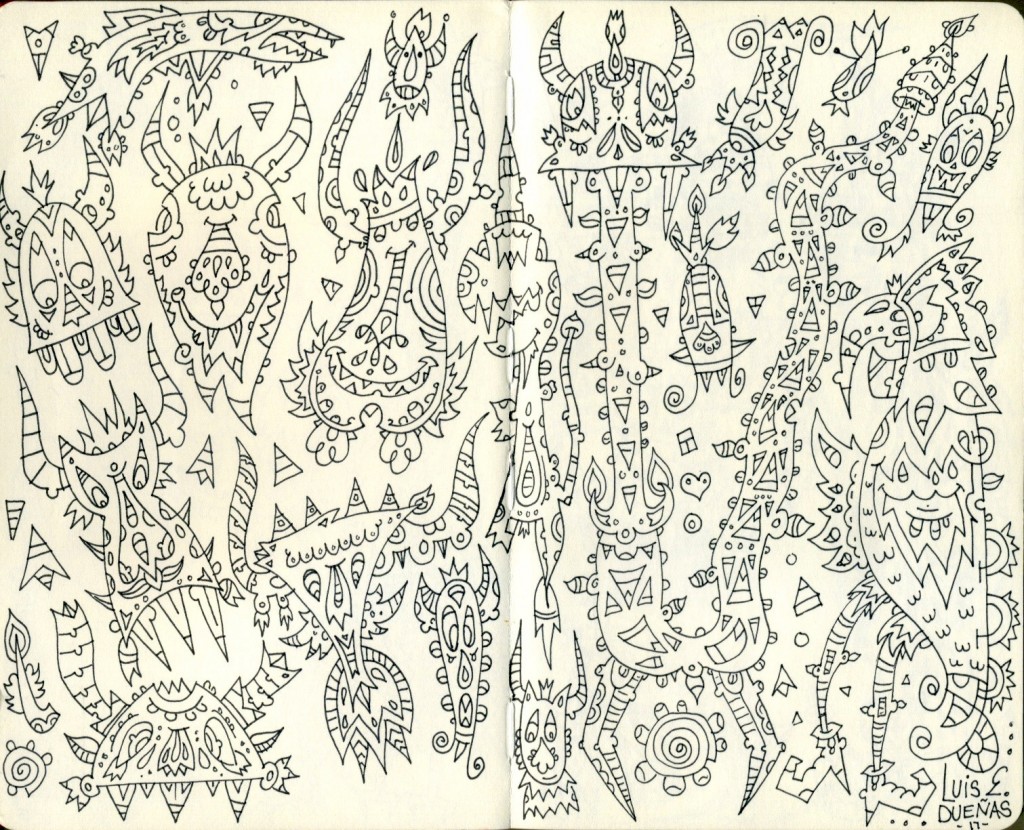 LUIS E.
DUEÑAS
-17-